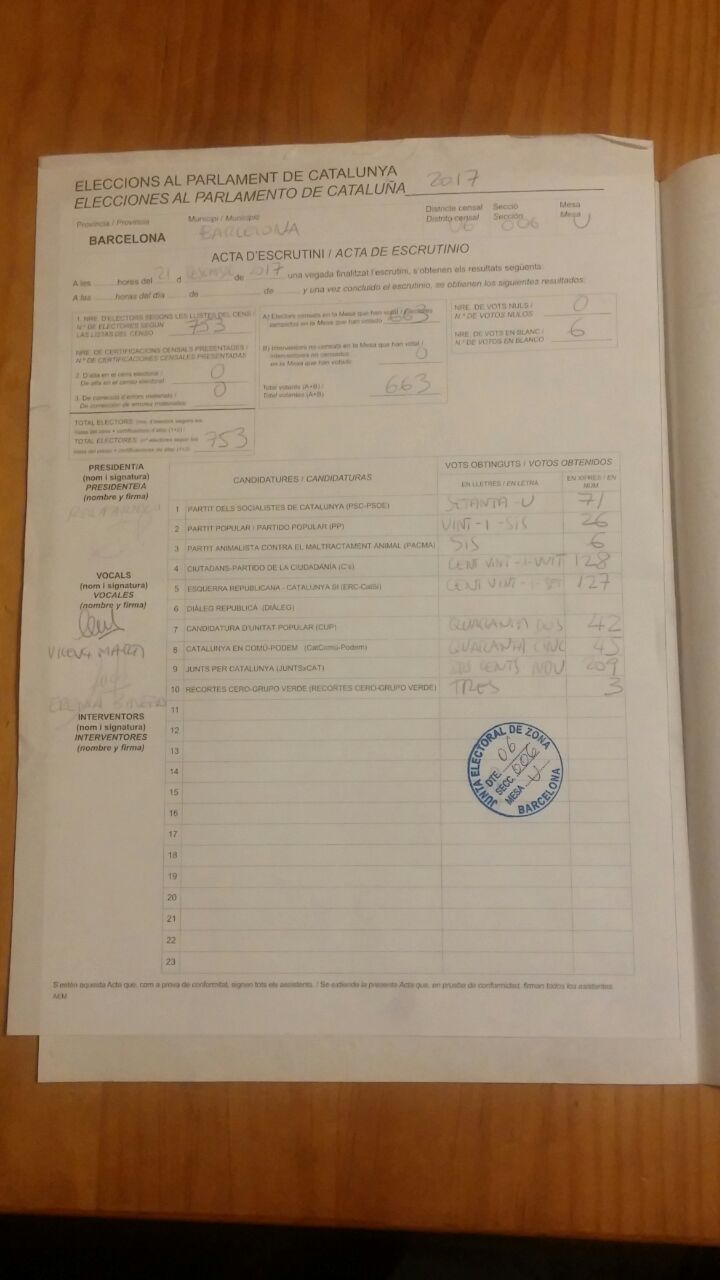 ELECCIONS AL PARLAMENT DE CATALUNYA
ELECCIONES AL PARLAMENTO DE CATALUÑA 2017
Província / Provincia
BARCELONA
Municipi / Municipio
BARCELONA
Districte censal Secció Mesa
Distrito censal Sección Mesa
06 006 U
ACTA D'ESCRUTINI / ACTA DE ESCRUTINIO
A les ...... hores del 21 d desembre de 2017 una vegada finalitzat l'escrutini, s'obtenen els resultats següents:
A las ...... horas del día ...... de ...... de ...... y una vez concluido el escrutinio, se obtienen los siguientes resultados:
1. NRE. D'ELECTORS SEGONS LES LLISTES DEL CENS /
N.º DE ELECTORES SEGÚN
LAS LISTAS DEL CENSO 753
NRE. DE CERTIFICACIONS CENSALS PRESENTADES /
N.º DE CERTIFICACIONES CENSALES PRESENTADAS
2. D'alta en el cens electoral /
De alta en el censo electoral 0
3. De correcció d'errors materials /
De corrección de errores materiales 0
TOTAL ELECTORS
TOTAL ELECTORES 753
A) Electors censats en la Mesa que han votat / Electores
censados en la Mesa que han votado 663
B) Interventors no censats en la Mesa que han votat /
Interventores no censados
en la Mesa que han votado 0
Total votants (A+B) /
Total votantes (A+B) 663
NRE. DE VOTS NULS /
N.º DE VOTOS NULOS 0
NRE. DE VOTS EN BLANC /
N.º DE VOTOS EN BLANCO 6
PRESIDENT/A
(nom i signatura)
PRESIDENTE/A
(nombre y firma)
VOCALS
(nom i signatura)
VOCALES
(nombre y firma)
INTERVENTORS
(nom i signatura)
INTERVENTORES
(nombre y firma)
CANDIDATURES / CANDIDATURAS
VOTS OBTINGUTS / VOTOS OBTENIDOS
EN LLETRES / EN LETRA EN XIFRES / EN NÚM.
1 PARTIT DELS SOCIALISTES DE CATALUNYA (PSC-PSOE) SETANTA-U 71
2 PARTIT POPULAR / PARTIDO POPULAR (PP) VINT-I-SIS 26
3 PARTIT ANIMALISTA CONTRA EL MALTRACTAMENT ANIMAL (PACMA) SIS 6
4 CIUTADANS-PARTIDO DE LA CIUDADANÍA (C's) CENT VINT-I-VUIT 128
5 ESQUERRA REPUBLICANA - CATALUNYA SÍ (ERC-CatSí) CENT VINT-I-SET 127
6 DIÀLEG REPUBLICÀ (DIÀLEG)
7 CANDIDATURA D'UNITAT POPULAR (CUP) QUARANTA DOS 42
8 CATALUNYA EN COMÚ-PODEM (CatComú-Podem) QUARANTA CINC 45
9 JUNTS PER CATALUNYA (JUNTSxCAT) DOS CENTS NOU 209
10 RECORTES CERO-GRUPO VERDE (RECORTES CERO-GRUPO VERDE) TRES 3
11
12
13
14
15
16
17
18
19
20
21
22
23
JUNTA ELECTORAL DE ZONA
DTE. 06
SECC. 006
MESA U
BARCELONA
S'estén aquesta Acta que, com a prova de conformitat, signen tots els assistents. / Se extiende la presente Acta que, en prueba de conformidad, firman todos los asistentes.
AEM